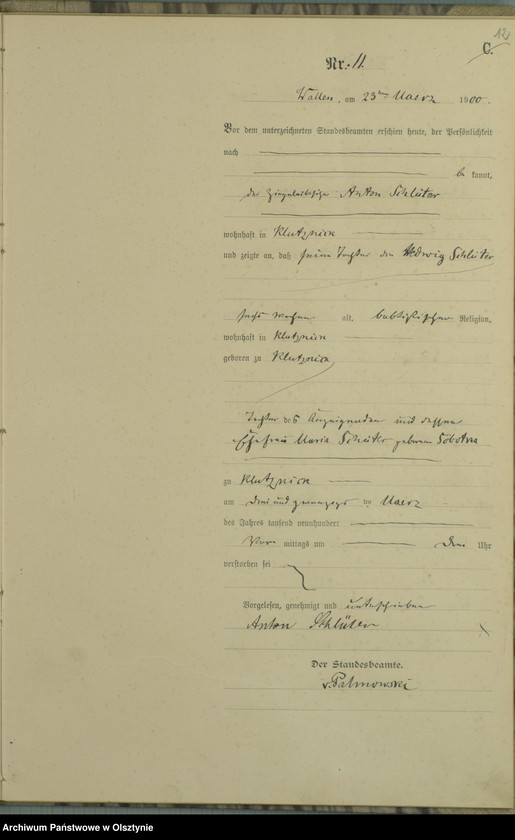 12
C.
Nr. 11.
Wallen, am 23ten Maerz 1900.
Vor dem unterzeichneten Standesbeamten erschien heute, der Persönlichkeit
nach
be kannt,
der Anton Schlüter
wohnhaft in Klutznick
und zeigte an, daß seine Tochter Hedwig Schlüter
sechs Wochen alt, babtistischer Religion,
wohnhaft in Klutznick
geboren zu Klutznick
Tochter des Anzeigenden und dessen
Ehefrau Maria Schlüter geborene Sobotna
zu Klutznick
am drei und zwanzigs ten Maerz
des Jahres tausend neunhundert
Vor mittags um drei Uhr
verstorben sei
Vorgelesen, genehmigt und unterschrieben
Anton Schlüter
Der Standesbeamte.
v. Palmowski
Archiwum Państwowe w Olsztynie